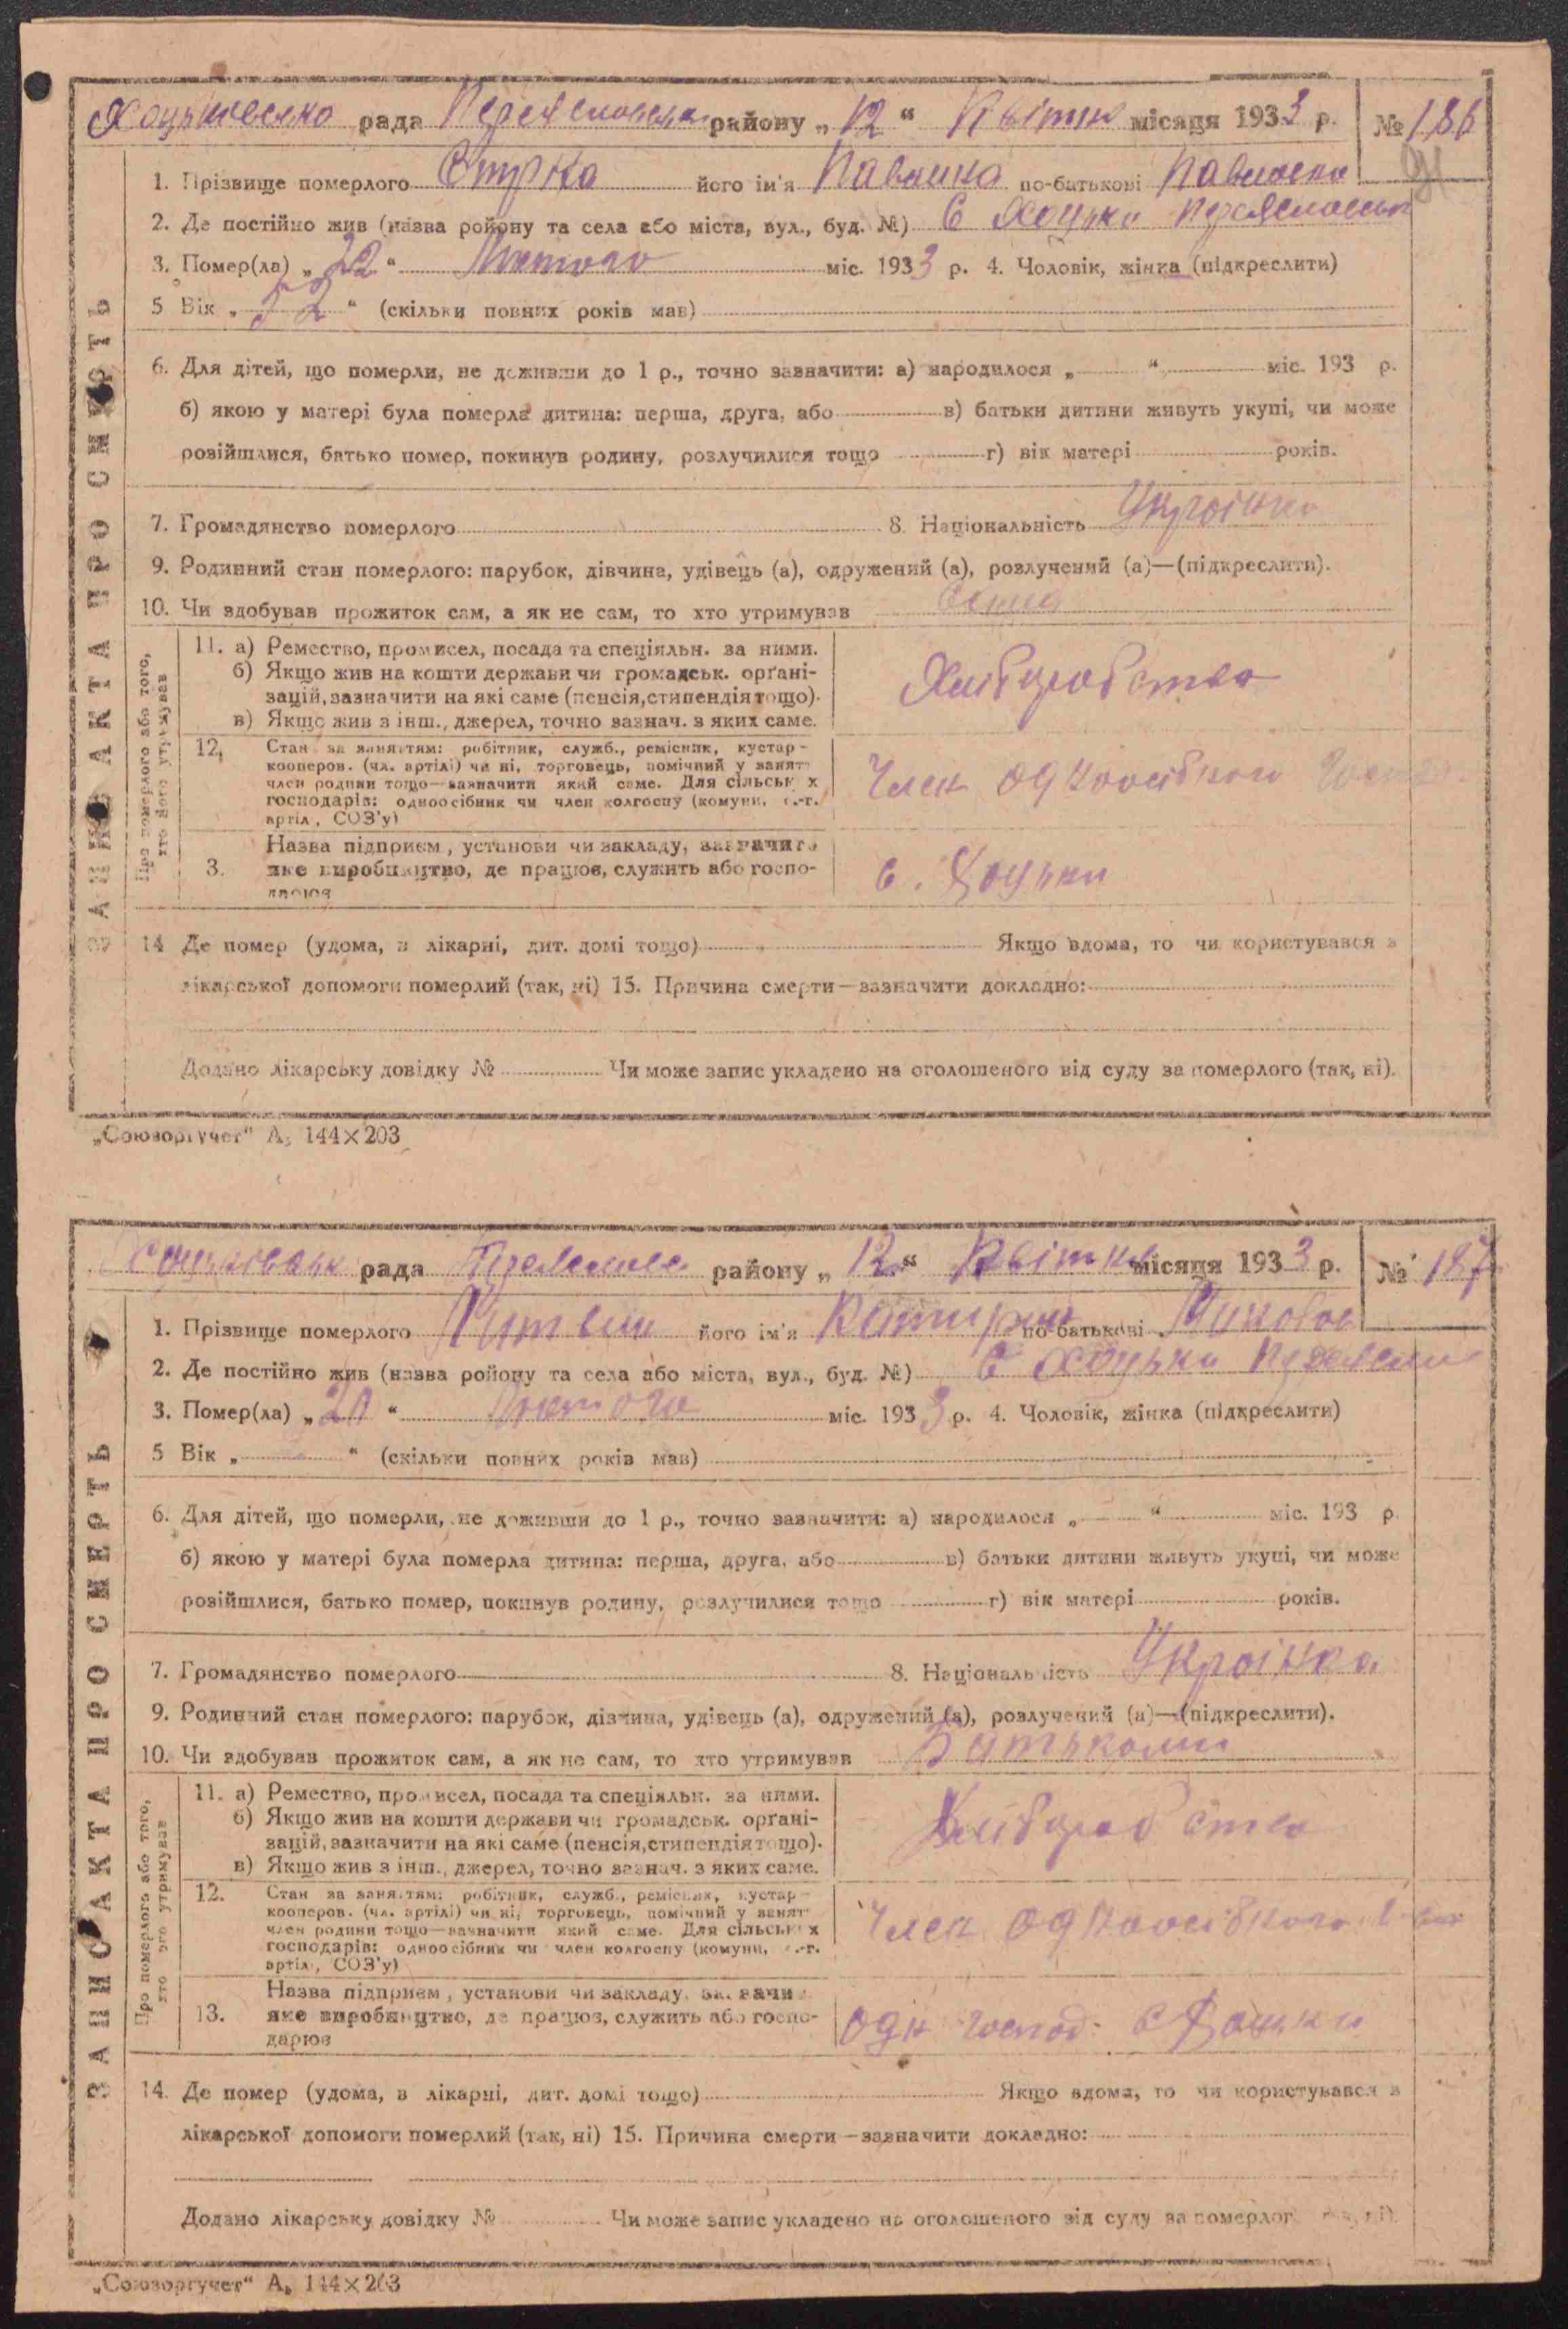 Хоцьківська рада Переяславськ району „12“ Квітня місяця 1933 р. № 186
1. Прізвище померлого його ім'я по-батькові
2. Де постійно жив (назва ройону та села або міста, вул., буд. №) С Хоцьки Переяславськ
3. Помер(ла) „22“ Лютого міс. 1933 р. 4. Чоловік, жінка (підкреслити)
5 Вік „52“ (скільки повних років мав)
6. Для дітей, що померли, не доживши до 1 р., точно зазначити: а) народилося „ “ міс. 193 р.
б) якою у матері була померла дитина: перша, друга, або в) батьки дитини живуть укупі, чи може
розійшлися, батько помер, покинув родину, розлучилися тощо г) вік матері років.
7. Громадянство померлого 8. Національність Українка
9. Родинний стан померлого: парубок, дівчина, удівець (а), одружений (а), розлучений (а)—(підкреслити).
10. Чи здобував прожиток сам, а як не сам, то хто утримував Сама
ЗАПИС АКТА ПРО СМЕРТЬ
Про померлого або того,
хто його утримував
11. а) Ремество, промисел, посада та спеціяльн. за ними.
б) Якщо жив на кошти держави чи громадськ. орґані-
зацій, зазначити на які саме (пенсія, стипендія тощо).
в) Якщо жив з інш., джерел, точно зазнач. з яких саме.
Хліборобство
12, Стан за заняттям: робітник, служб., ремісник, кустар-
кооперов. (чл. артілі) чи ні, торговець, помічний у занят
член родини тощо—зазначити який саме. Для сільськ х
господарів: одноосібник чи член колгоспу (комуни, с.-г.
артіл, СОЗ'у)
Член одноосібного
3. Назва підприєм, установи чи закладу, зазначити
яке виробництво, де працює, служить або госпо-
дарює
с. Хоцьки
14 Де помер (удома, в лікарні, дит. домі тощо) Якщо вдома, то чи користувався з
лікарської допомоги померлий (так, ні) 15. Причина смерти—зазначити докладно:
Додано лікарську довідку № Чи може запис укладено на оголошеного від суду за померлого (так, ні).
„Союзоргучет“ А₅ 144×203
Хоцьківськ рада району „12“ Квітня місяця 1933 р. № 187
1. Прізвище померлого Литвин його ім'я Катерин по-батькові
2. Де постійно жив (назва ройону та села або міста, вул., буд. №) С Хоцьки
3. Помер(ла) „20“ Лютого міс. 1933 р. 4. Чоловік, жінка (підкреслити)
5 Вік „ “ (скільки повних років мав)
6. Для дітей, що померли, не доживши до 1 р., точно зазначити: а) народилося „ “ міс. 193 р.
б) якою у матері була померла дитина: перша, друга, або в) батьки дитини живуть укупі, чи може
розійшлися, батько помер, покинув родину, розлучилися тощо г) вік матері років.
7. Громадянство померлого 8. Національність Українка
9. Родинний стан померлого: парубок, дівчина, удівець (а), одружений (а), розлучений (а)—(підкреслити).
10. Чи здобував прожиток сам, а як не сам, то хто утримував Батьками
ЗАПИС АКТА ПРО СМЕРТЬ
Про померлого або того,
хто його утримував
11. а) Ремество, промисел, посада та спеціяльн. за ними.
б) Якщо жив на кошти держави чи громадськ. орґані-
зацій, зазначити на які саме (пенсія, стипендія тощо).
в) Якщо жив з інш., джерел, точно зазнач. з яких саме.
Хліборобство
12. Стан за заняттям: робітник, служб., ремісник, кустар-
кооперов. (чл. артілі) чи ні, торговець, помічний у занят
член родини тощо—зазначити який саме. Для сільськ х
господарів: одноосібник чи член колгоспу (комуни, с.-г.
артіл, СОЗ'у)
Член одноосібного
13. Назва підприєм, установи чи закладу, зазначи
яке виробництво, де працює, служить або госпо-
дарює
Одн господ. с Хоцьки
14. Де помер (удома, в лікарні, дит. домі тощо) Якщо вдома, то чи користувався з
лікарської допомоги померлий (так, ні) 15. Причина смерти—зазначити докладно:
Додано лікарську довідку № Чи може запис укладено на оголошеного від суду за померлог
„Союзоргучет“ А₅ 144×203